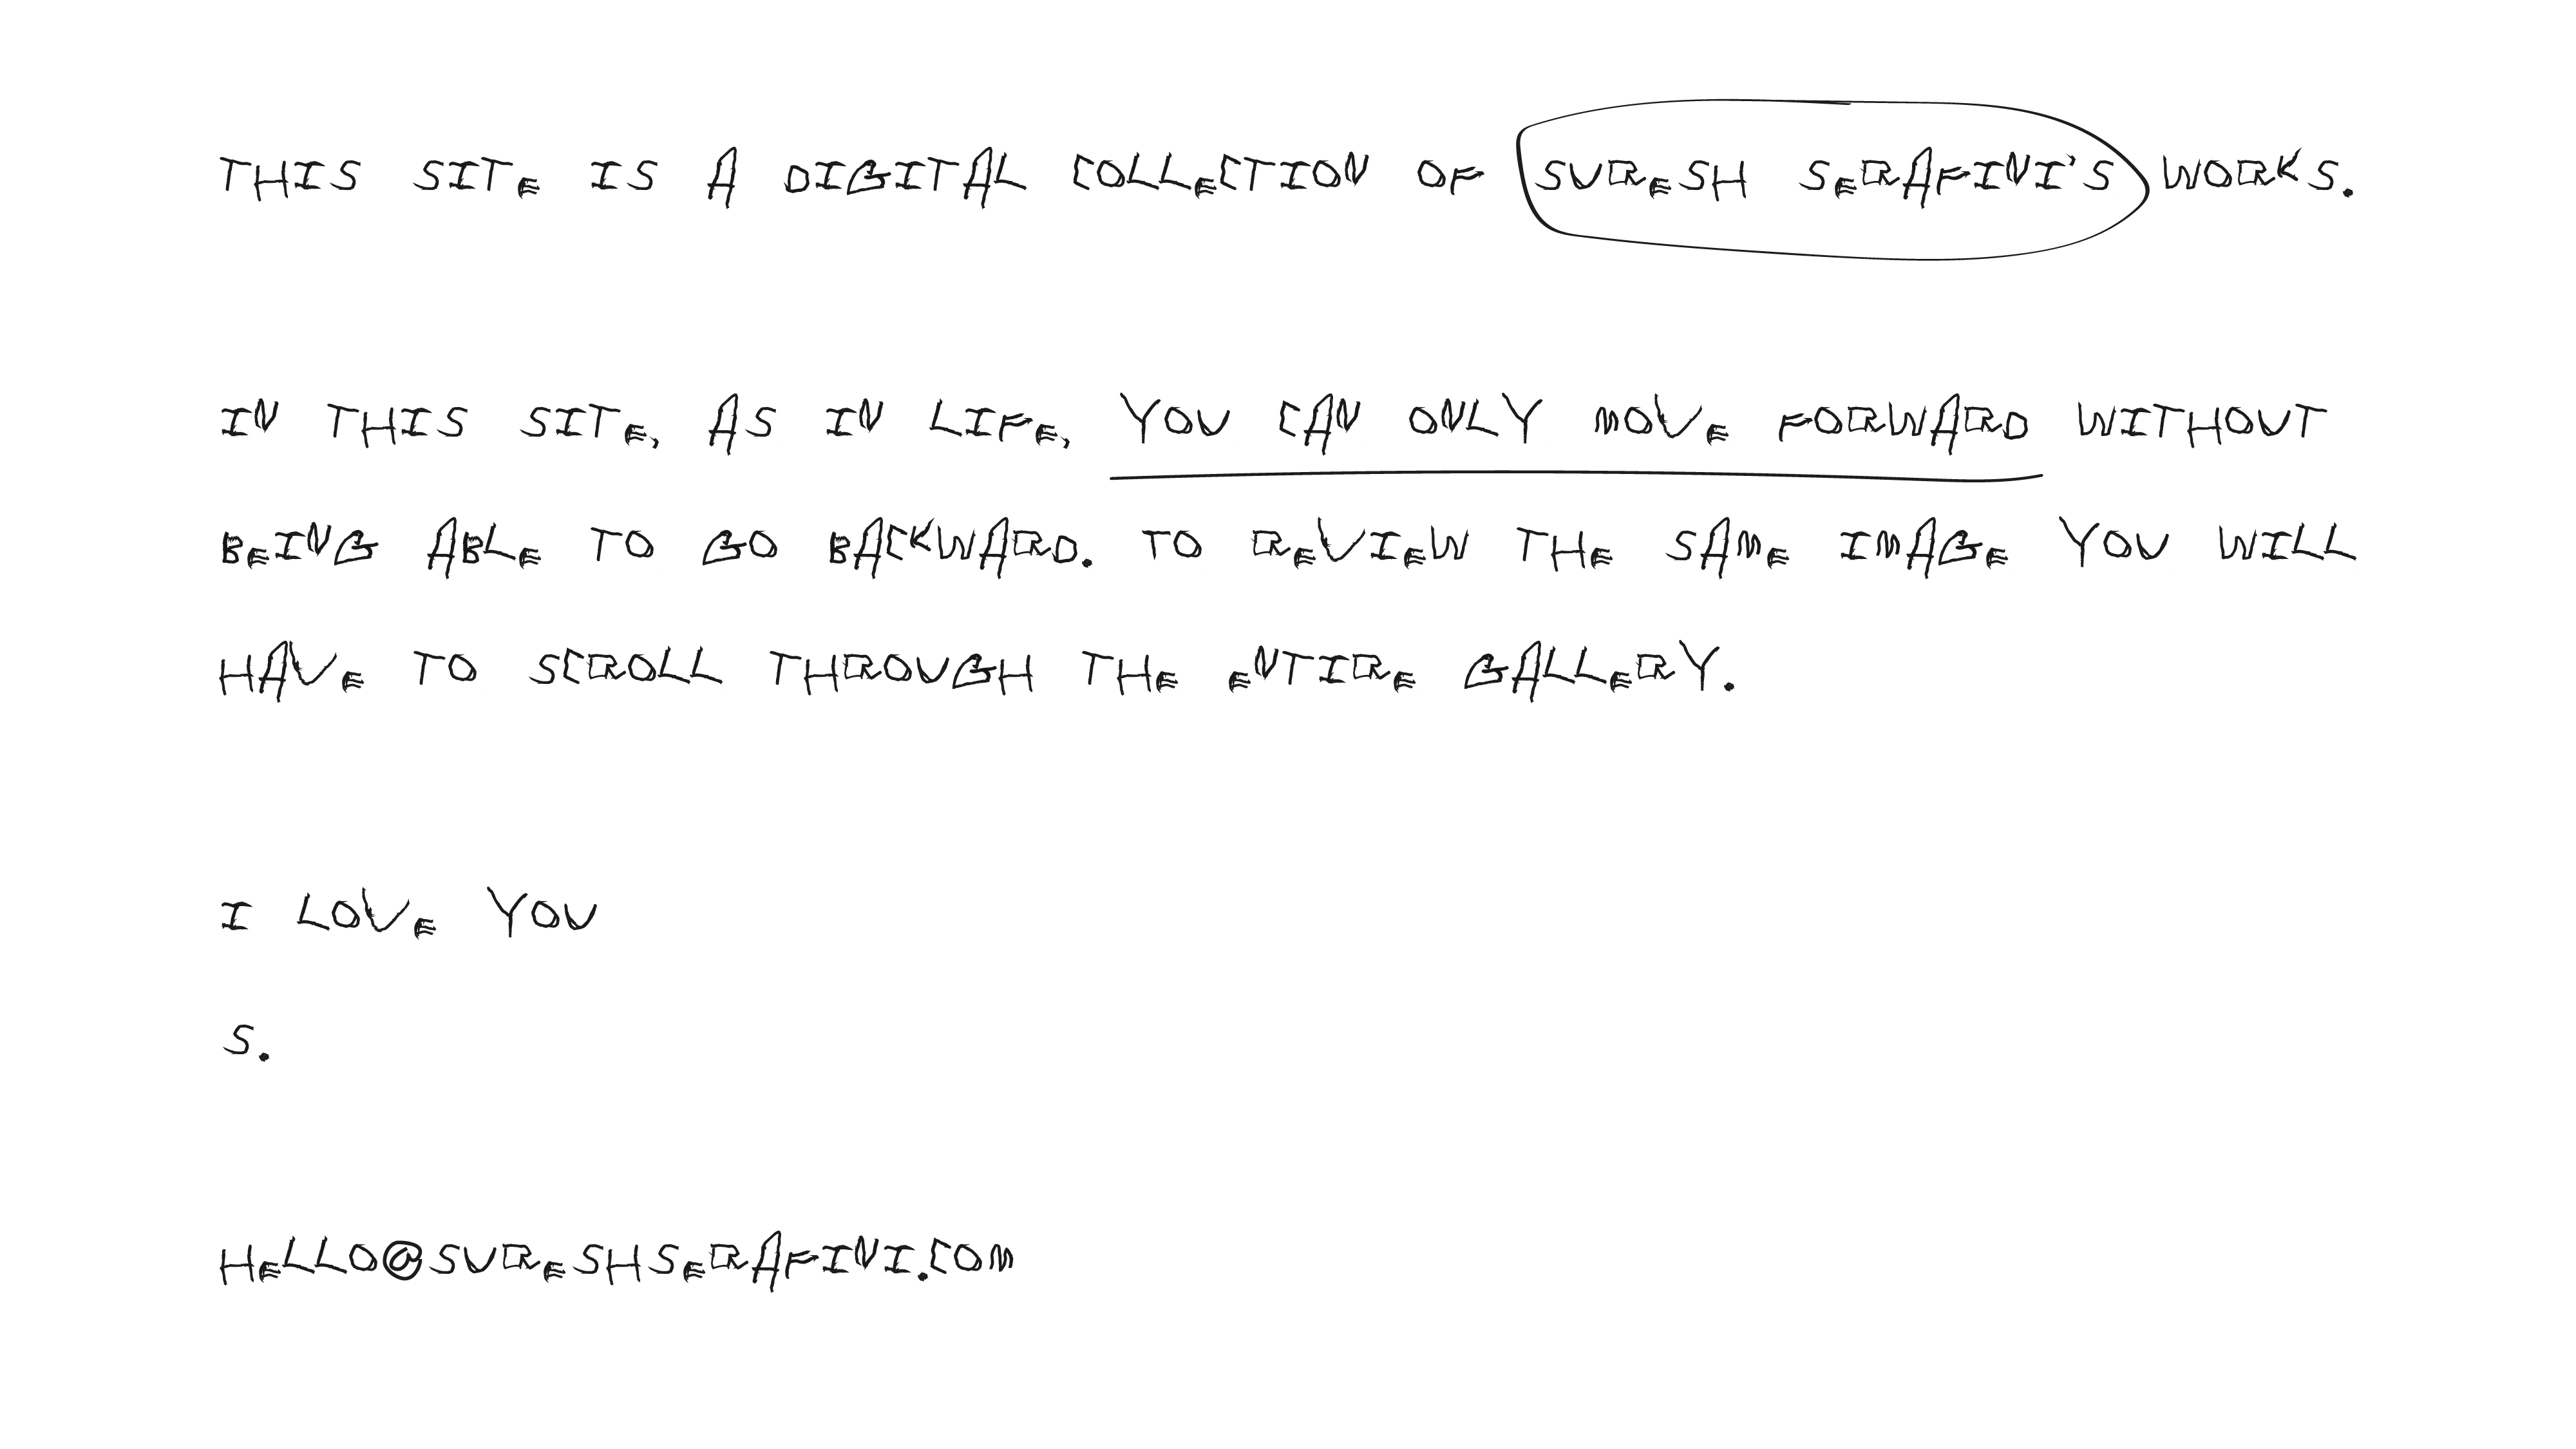 THIS SITE IS A DIGITAL COLLECTION OF SURESH SERAFINI'S WORKS.
IN THIS SITE, AS IN LIFE, YOU CAN ONLY MOVE FORWARD WITHOUT
BEING ABLE TO GO BACKWARD. TO REVIEW THE SAME IMAGE YOU WILL
HAVE TO SCROLL THROUGH THE ENTIRE GALLERY.
I LOVE YOU
S.
HELLO@SURESHSERAFINI.COM